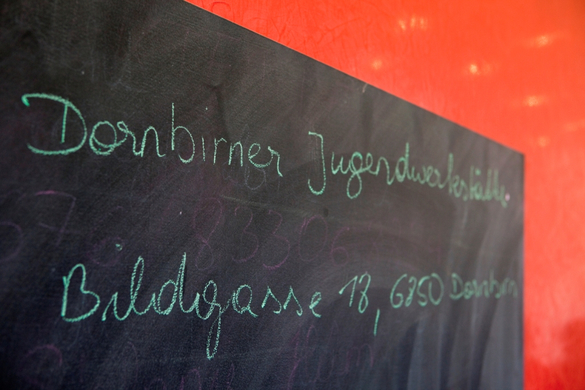 Dornbirner Jugendwerkstätte
Bildgasse 18, 6850 Dornbirn